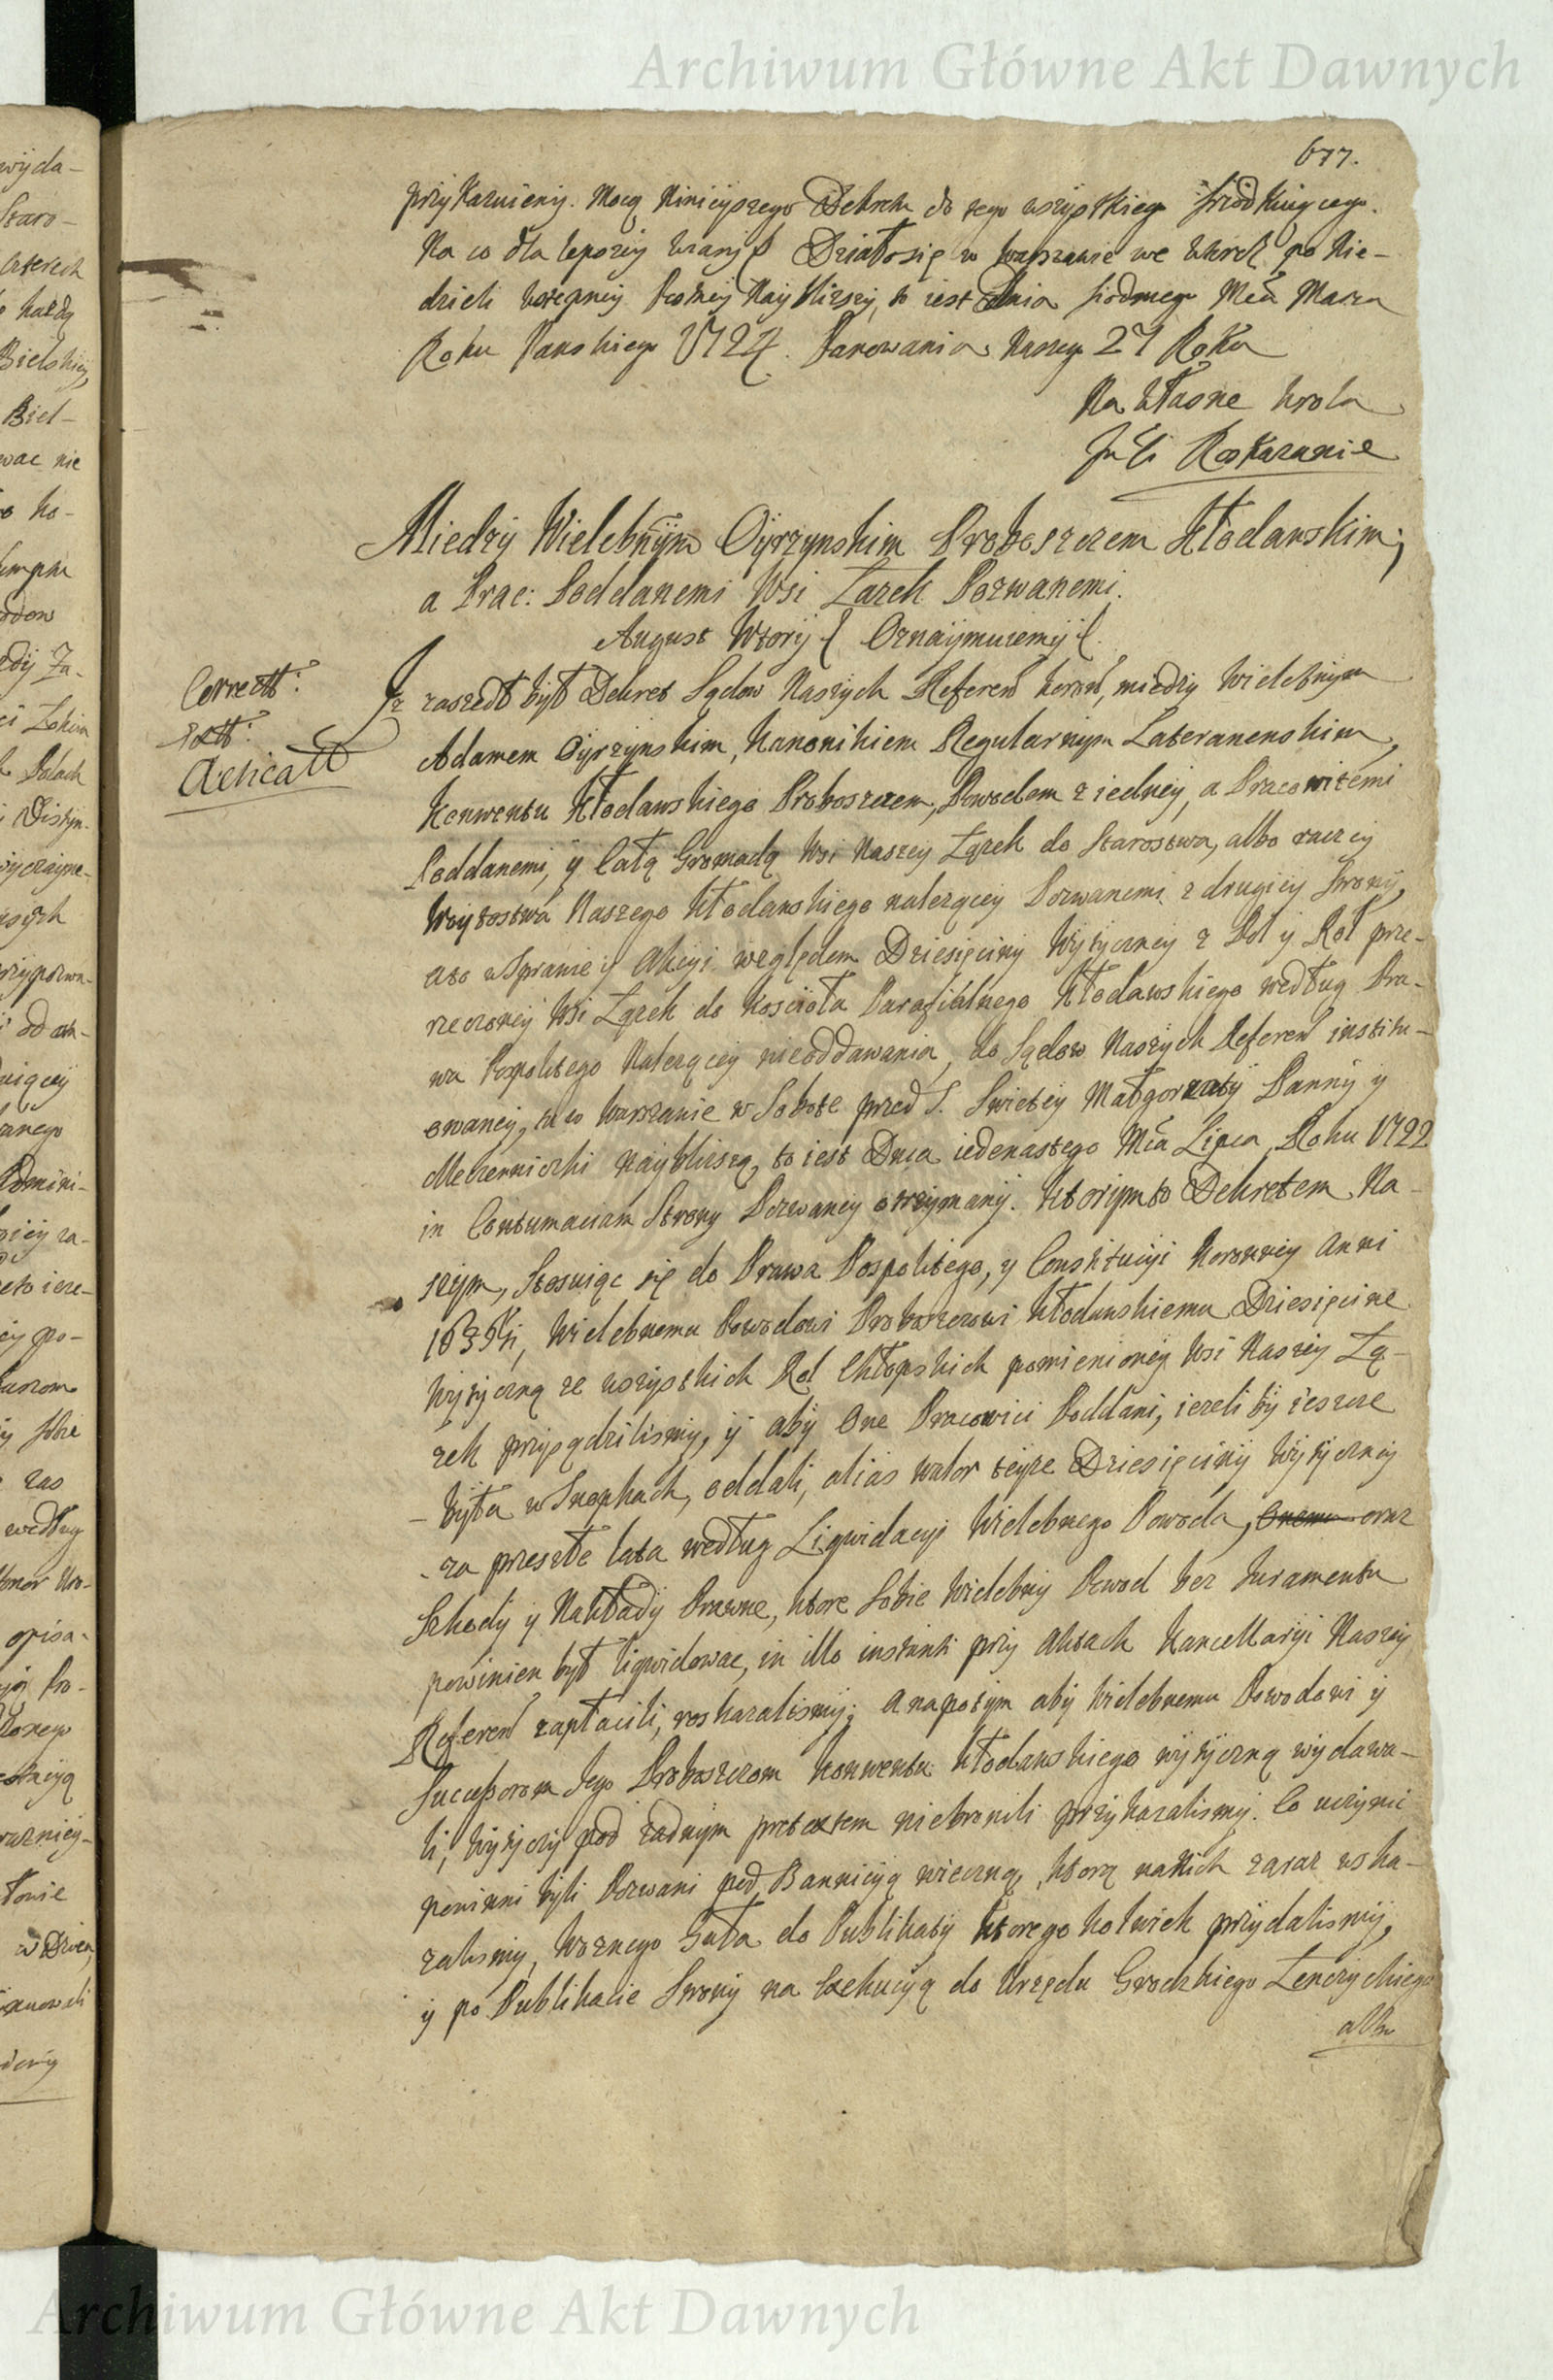 Archiwum Główne Akt Dawnych
677.
przykazuiemy. Mocą Ninieyszego Dekretu do tego wszystkiego
Na co dla lepszey wiary Działo się w Warszawie we Wtorek po Nie-
dzieli wstępney Postney Naybliższy, to iest Dnia siodmego Mca Marca
Roku Panskiego 1724. Panowania Naszego 27 Roku
Na Własne Krola
Jmci Roskazanie
Miedzy Wielebnÿm Oÿrzynskim Proboszczem Kłodawskim;
a Prac: Poddanemi Wsi Łazek Pozwanemi.
August Wtorÿ Oznaÿmuiemÿ
Correctt:
Extt:
Iz zaszedł bÿł Dekret Sądow Naszÿch Referen Koron, miedzÿ Wielebnÿm
Adamem Oÿrzÿnskim, Kanonikiem Regularnÿm Lateranenskim,
Konwentu Kłodawskiego Proboszczem, Powodem z iedneÿ, a Pracowitemi
Poddanemi, ÿ Całą Gromadą Wsi Naszeÿ Łązek do Starostwa, albo raczeÿ
Woÿtostwa Naszego Kłodawskiego nalezącey Pozwanemi z drugieÿ stronÿ,
a to w Sprawie ÿ Akcÿi względem Dziesięcinÿ Wÿtÿczneÿ z Pol ÿ Rol prze-
rzeczoneÿ Wsi Łązek do Koscioła Parafialnego Kłodawskiego według Pra-
wa Pospolitego Nalezącey nieoddawania, do Sądow Naszÿch Referen institu-
owaneÿ, tu w Warszawie w Sobote przed S. Swietey Małgorzatÿ Pannÿ y
Meczenniczki naÿbliszą, to iest Dnia iedenastego Mca Lipca, Roku 1722
in Contumaciam Strony Pozwaney otrzÿmanÿ. Ktorÿm to Dekretem Na-
szÿm, Stosuiąc się do Prawa Pospolitego, y Constitucÿi Koronney Anni
Wielebnemu Powodowi Proboszczowi Kłodawskiemu Dziesięcine
Wÿtÿczną ze wszÿstkich Rol Chłopskich pomienioneÿ Wsi Naszeÿ Łą-
zek przÿsądzilismÿ, ÿ abÿ One Pracowici Poddani, iezeli bÿ ieszcze
bÿła w Snopkach, oddali, alias walor teÿze Dziesięcinÿ Wÿtÿczneÿ
za przeszłe lata według Liqwidacyi Wielebnego Powoda, Onemu oraz
Szkodÿ ÿ Nakładÿ Prawne, ktore Sobie Wielebnÿ Powod bez Juramentu
powinien bÿł liqwidowac, in illo instanti przÿ Aktach Kancellarÿi Naszeÿ
Referen zapłacili, roskazalismÿ; a napotÿm abÿ Wielebnemu Powodowi ÿ
Successorom Jego Proboszczom Konwentu Kłodawskiego wÿtÿczną wÿdawa-
li, wÿtÿczÿ pod zadnÿm pretextem niebronili przÿkazalismÿ. Co uczÿnic
powinni bÿli Pozwani pod Bannicÿą wieczną, ktorą naNich zaraz wska-
zalismÿ, Woznego Sąda do Publikatÿ ktorego kolwiek przÿdalismÿ,
ÿ po Publikacie Stronÿ na Exekucÿą do Urzędu Grodzkiego Łenczÿckiego
albo
Archiwum Główne Akt Dawnych